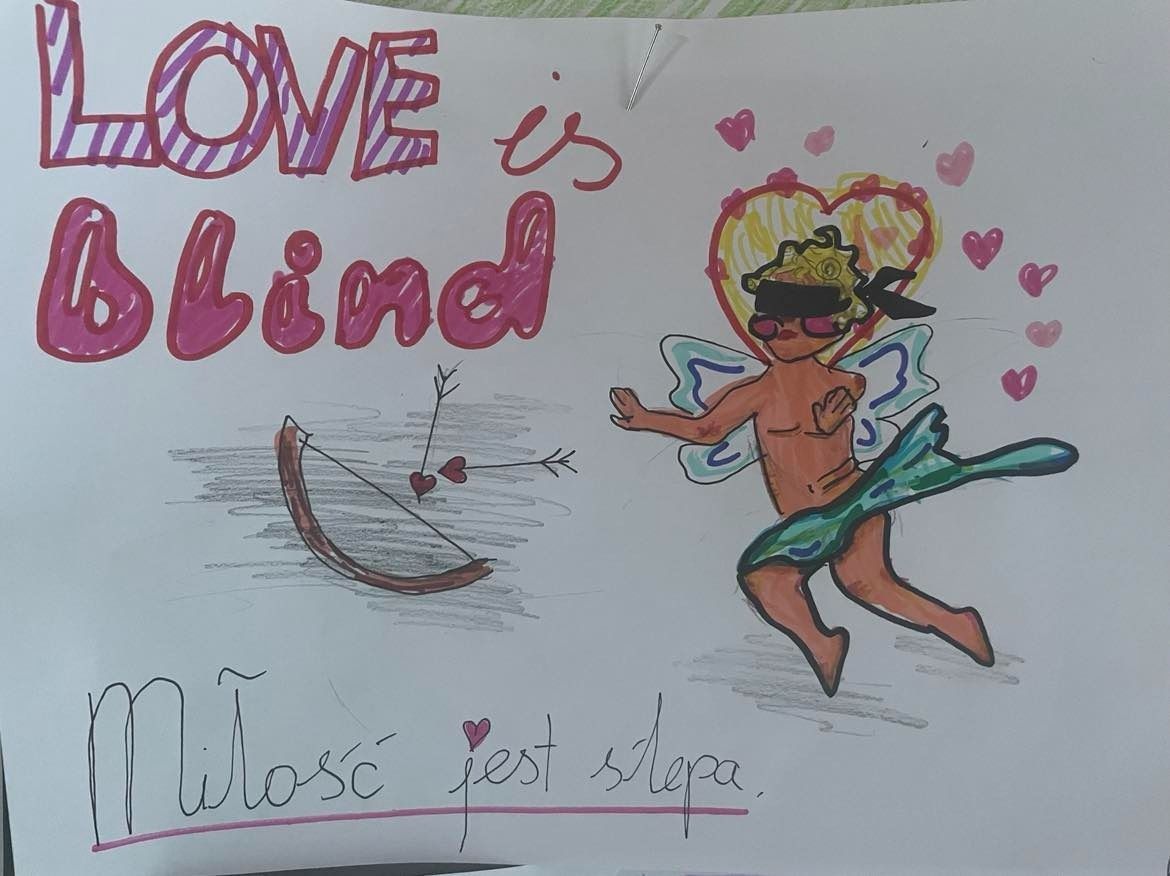 LOVE is
blind
Miłość jest ślepa.